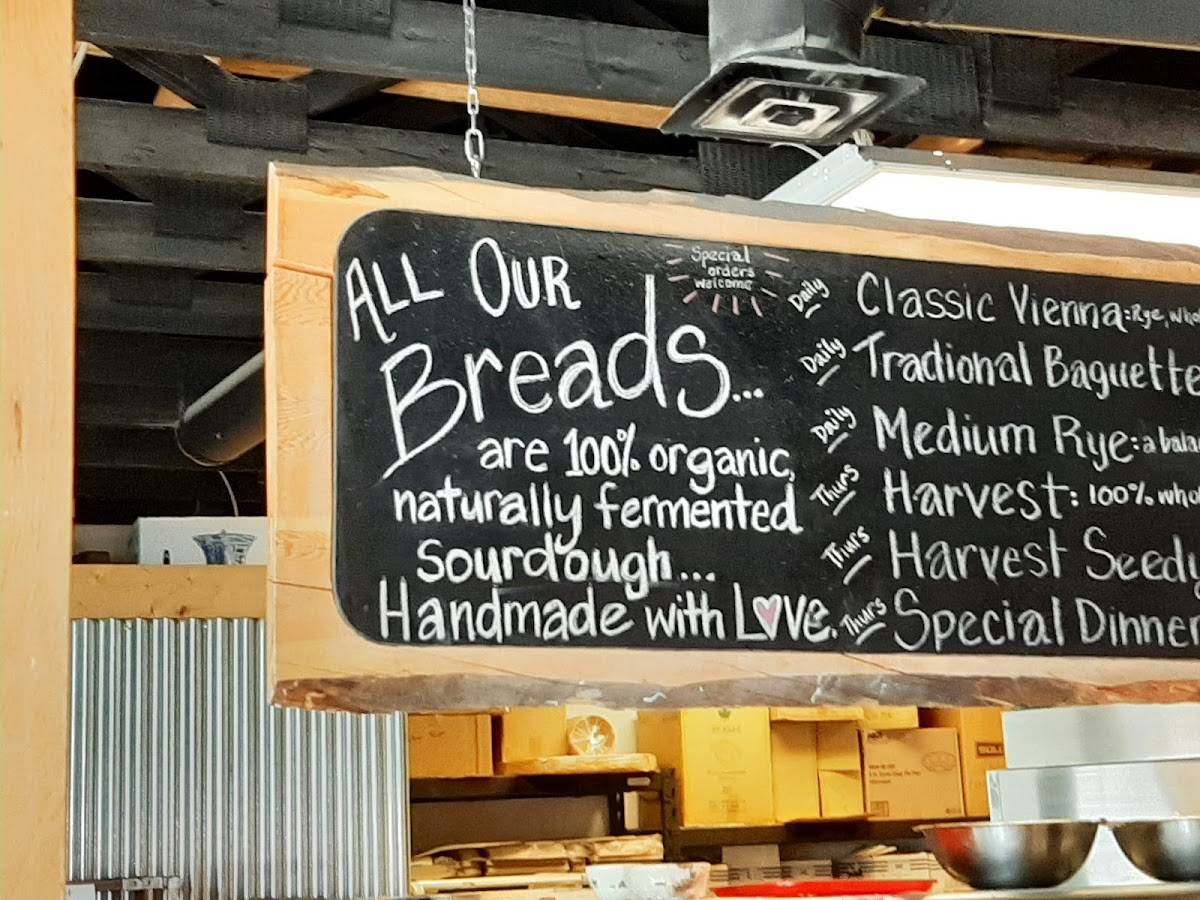 ALL OUR
Breads...
are 100% organic,
naturally fermented
Sourdough...
Handmade with Love.
Special
orders
welcome
Daily Classic Vienna: Rye,
Daily Tradional Baguette
Daily Medium Rye: a
Thurs Harvest: 100%
Thurs Harvest Seedy
Thurs Special Dinner